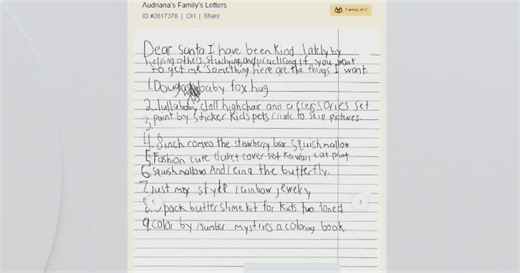 Audriana's Family's Letters
ID #2617376 | OH | Share
Family of 2
Dear Santa I have been kind lately by
helping others, studying, and practicing if you want
to get me something here are the things I want.
1. Douglas baby fox hug
2. lullababy doll highchair and accessories set
3. paint by sticker kids pets create 10 pictures
4. 8inch romeo the strawberry bear squishmallow
5. Fashion cute duvet cover set kawaii cat
6 squishmallows the butterfly.
7. just my style rainbow jewelry
pack butter slime kit for kids two toned
9. color by number mysteries a coloring book